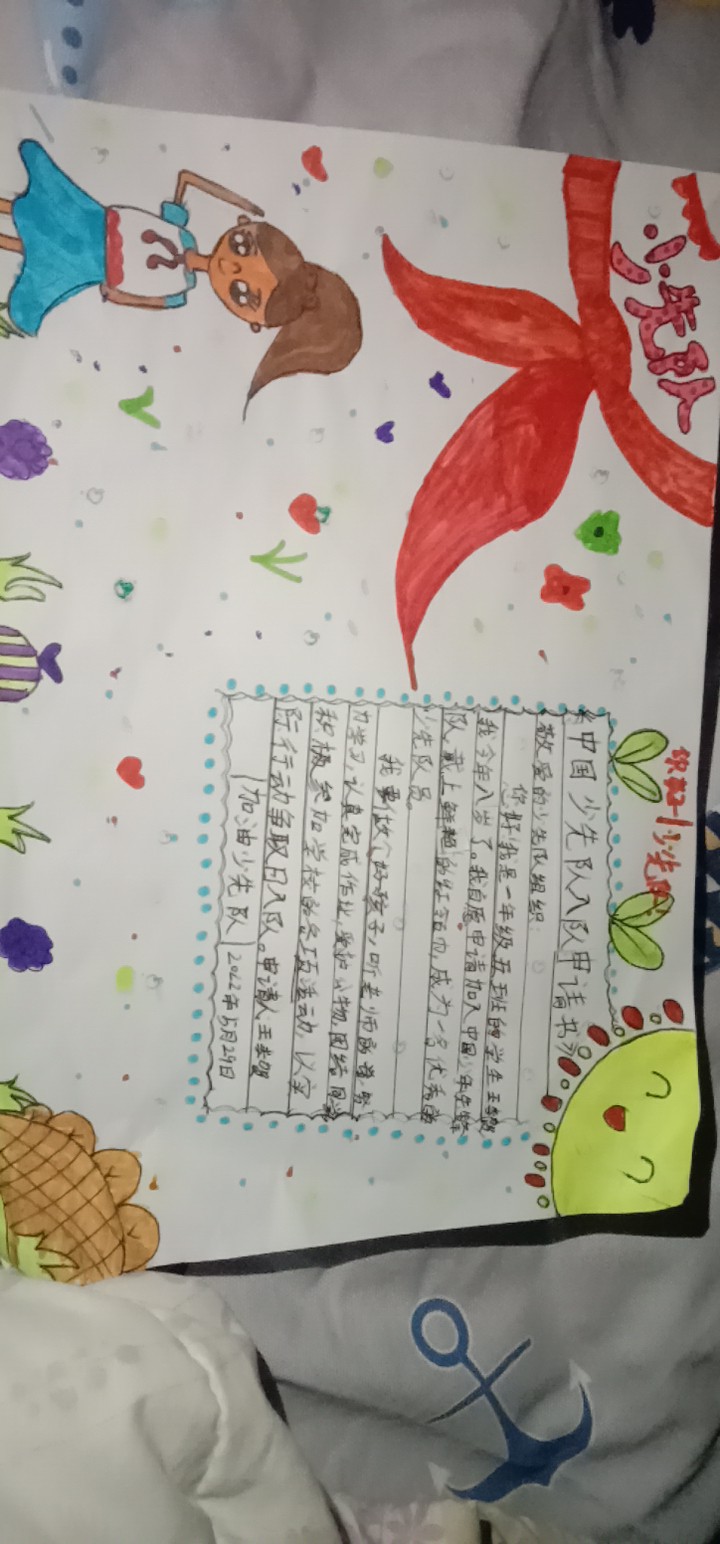 少先队
《中国少先队入队申请书》
敬爱的少先队组织:
你好!我是一年级五班的学生王
我今年八岁了。我自愿申请加入中国少年先锋
队,戴上鲜艳的红领巾,成为一名优秀的
少先队员。
我要做个好孩子,听老师
力学习,认真完成作业,爱护公物,团结同学
积极参加学校的各项活动,以实
际行动争取日入队。申请人:王
加油少先队 2022年5月29日